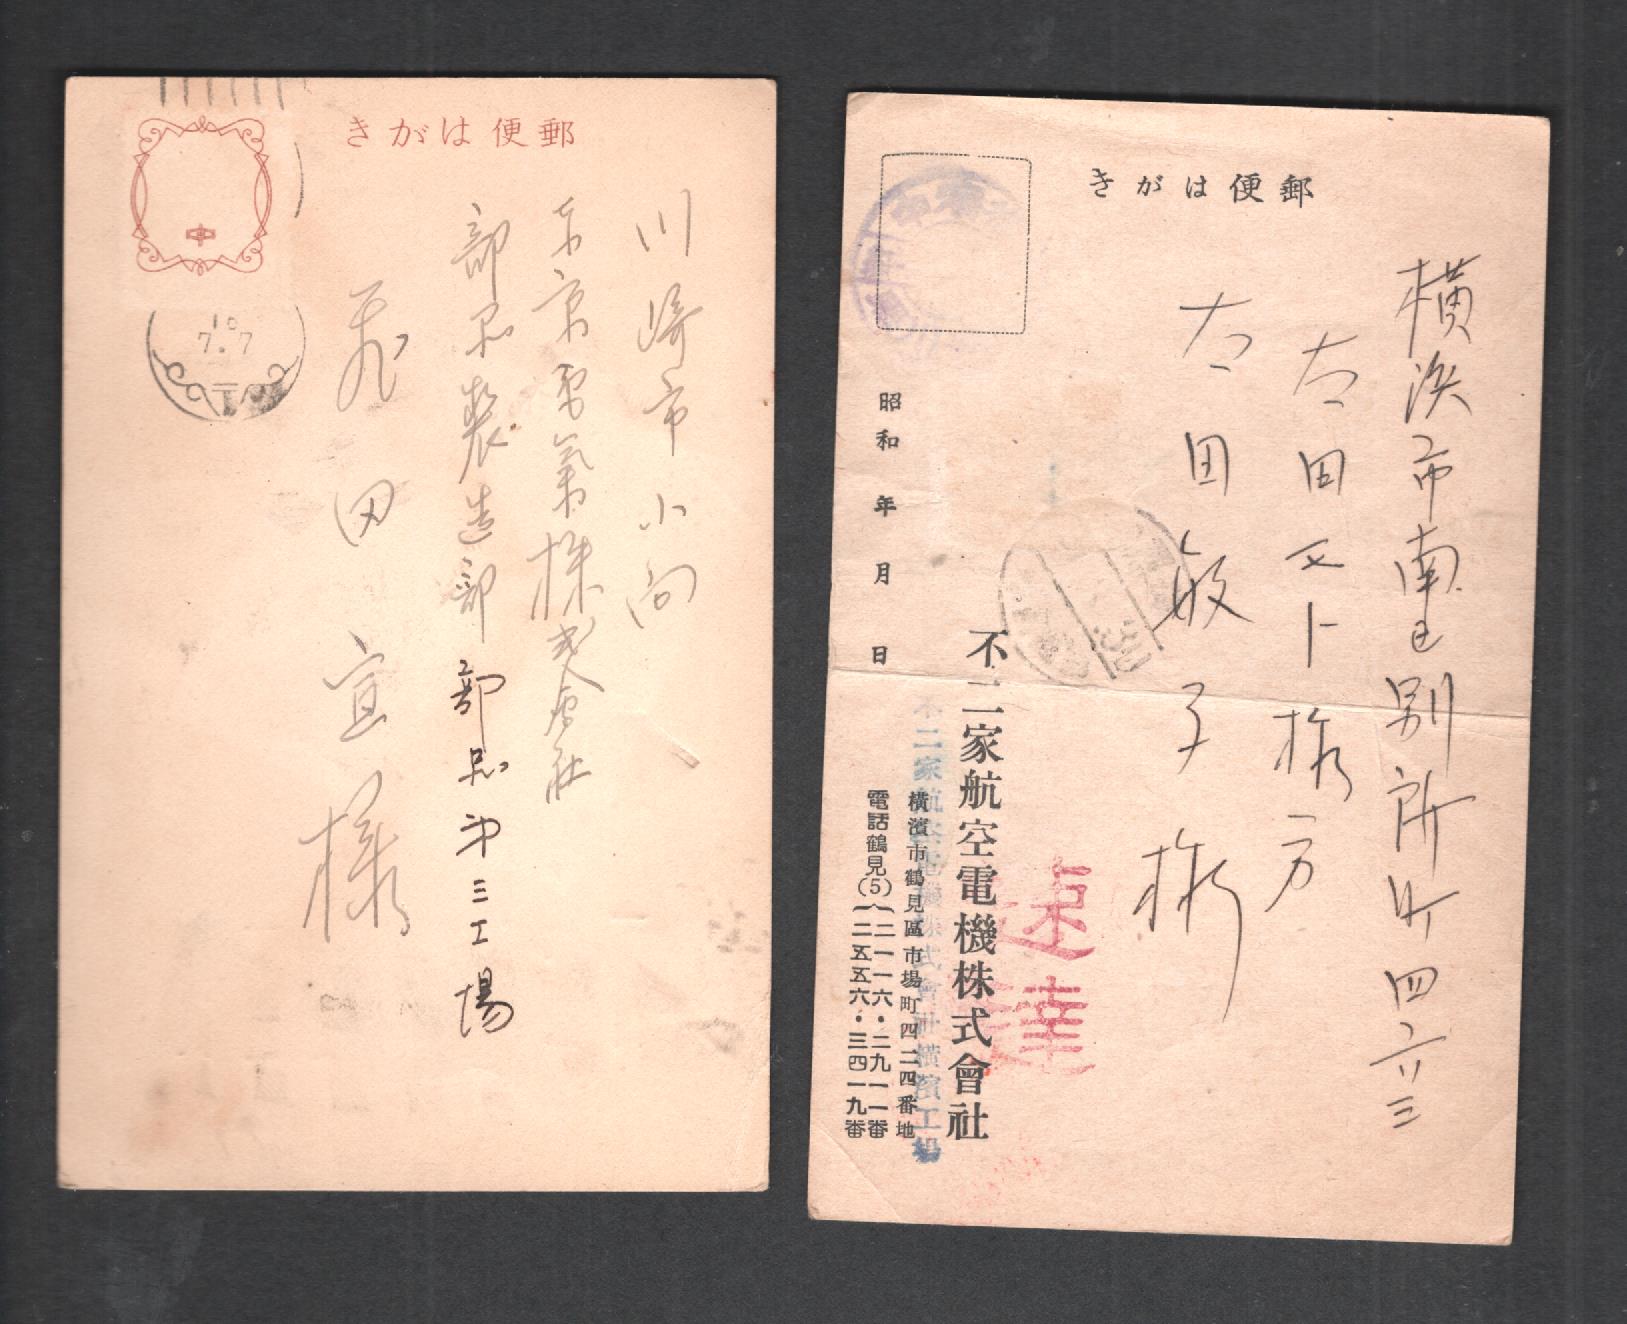 郵便はがき
川崎市小向
東京電氣株式會社
部品製造部部品第三工場
田宣様
10
7.7
郵便はがき
横浜市南区別所町四六三
太田ヌト様方
太田敏子様
昭和 年 月 日
速達
不二家航空電機株式會社
不二家航空電機株式會社横濱工場
横濱市鶴見區市場町四二四番地
電話鶴見(5)
二一一六・二九一一番
二五五六・三四一九番